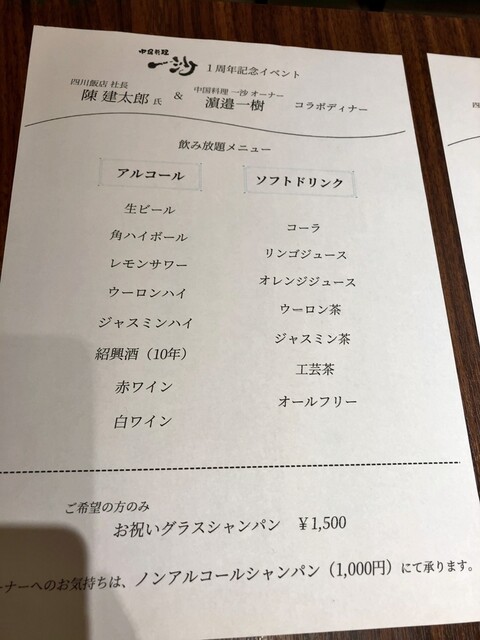 中国料理 一沙 1周年記念イベント
四川飯店 社長 中国料理 一沙 オーナー
陳 建太郎 氏 & 濵邉一樹 コラボディナー
飲み放題メニュー
アルコール ソフトドリンク
生ビール
角ハイボール
レモンサワー
ウーロンハイ
ジャスミンハイ
紹興酒（10年）
赤ワイン
白ワイン
コーラ
リンゴジュース
オレンジジュース
ウーロン茶
ジャスミン茶
工芸茶
オールフリー
ご希望の方のみ
お祝いグラスシャンパン ￥1,500
ーナーへのお気持ちは、ノンアルコールシャンパン（1,000円）にて承ります。